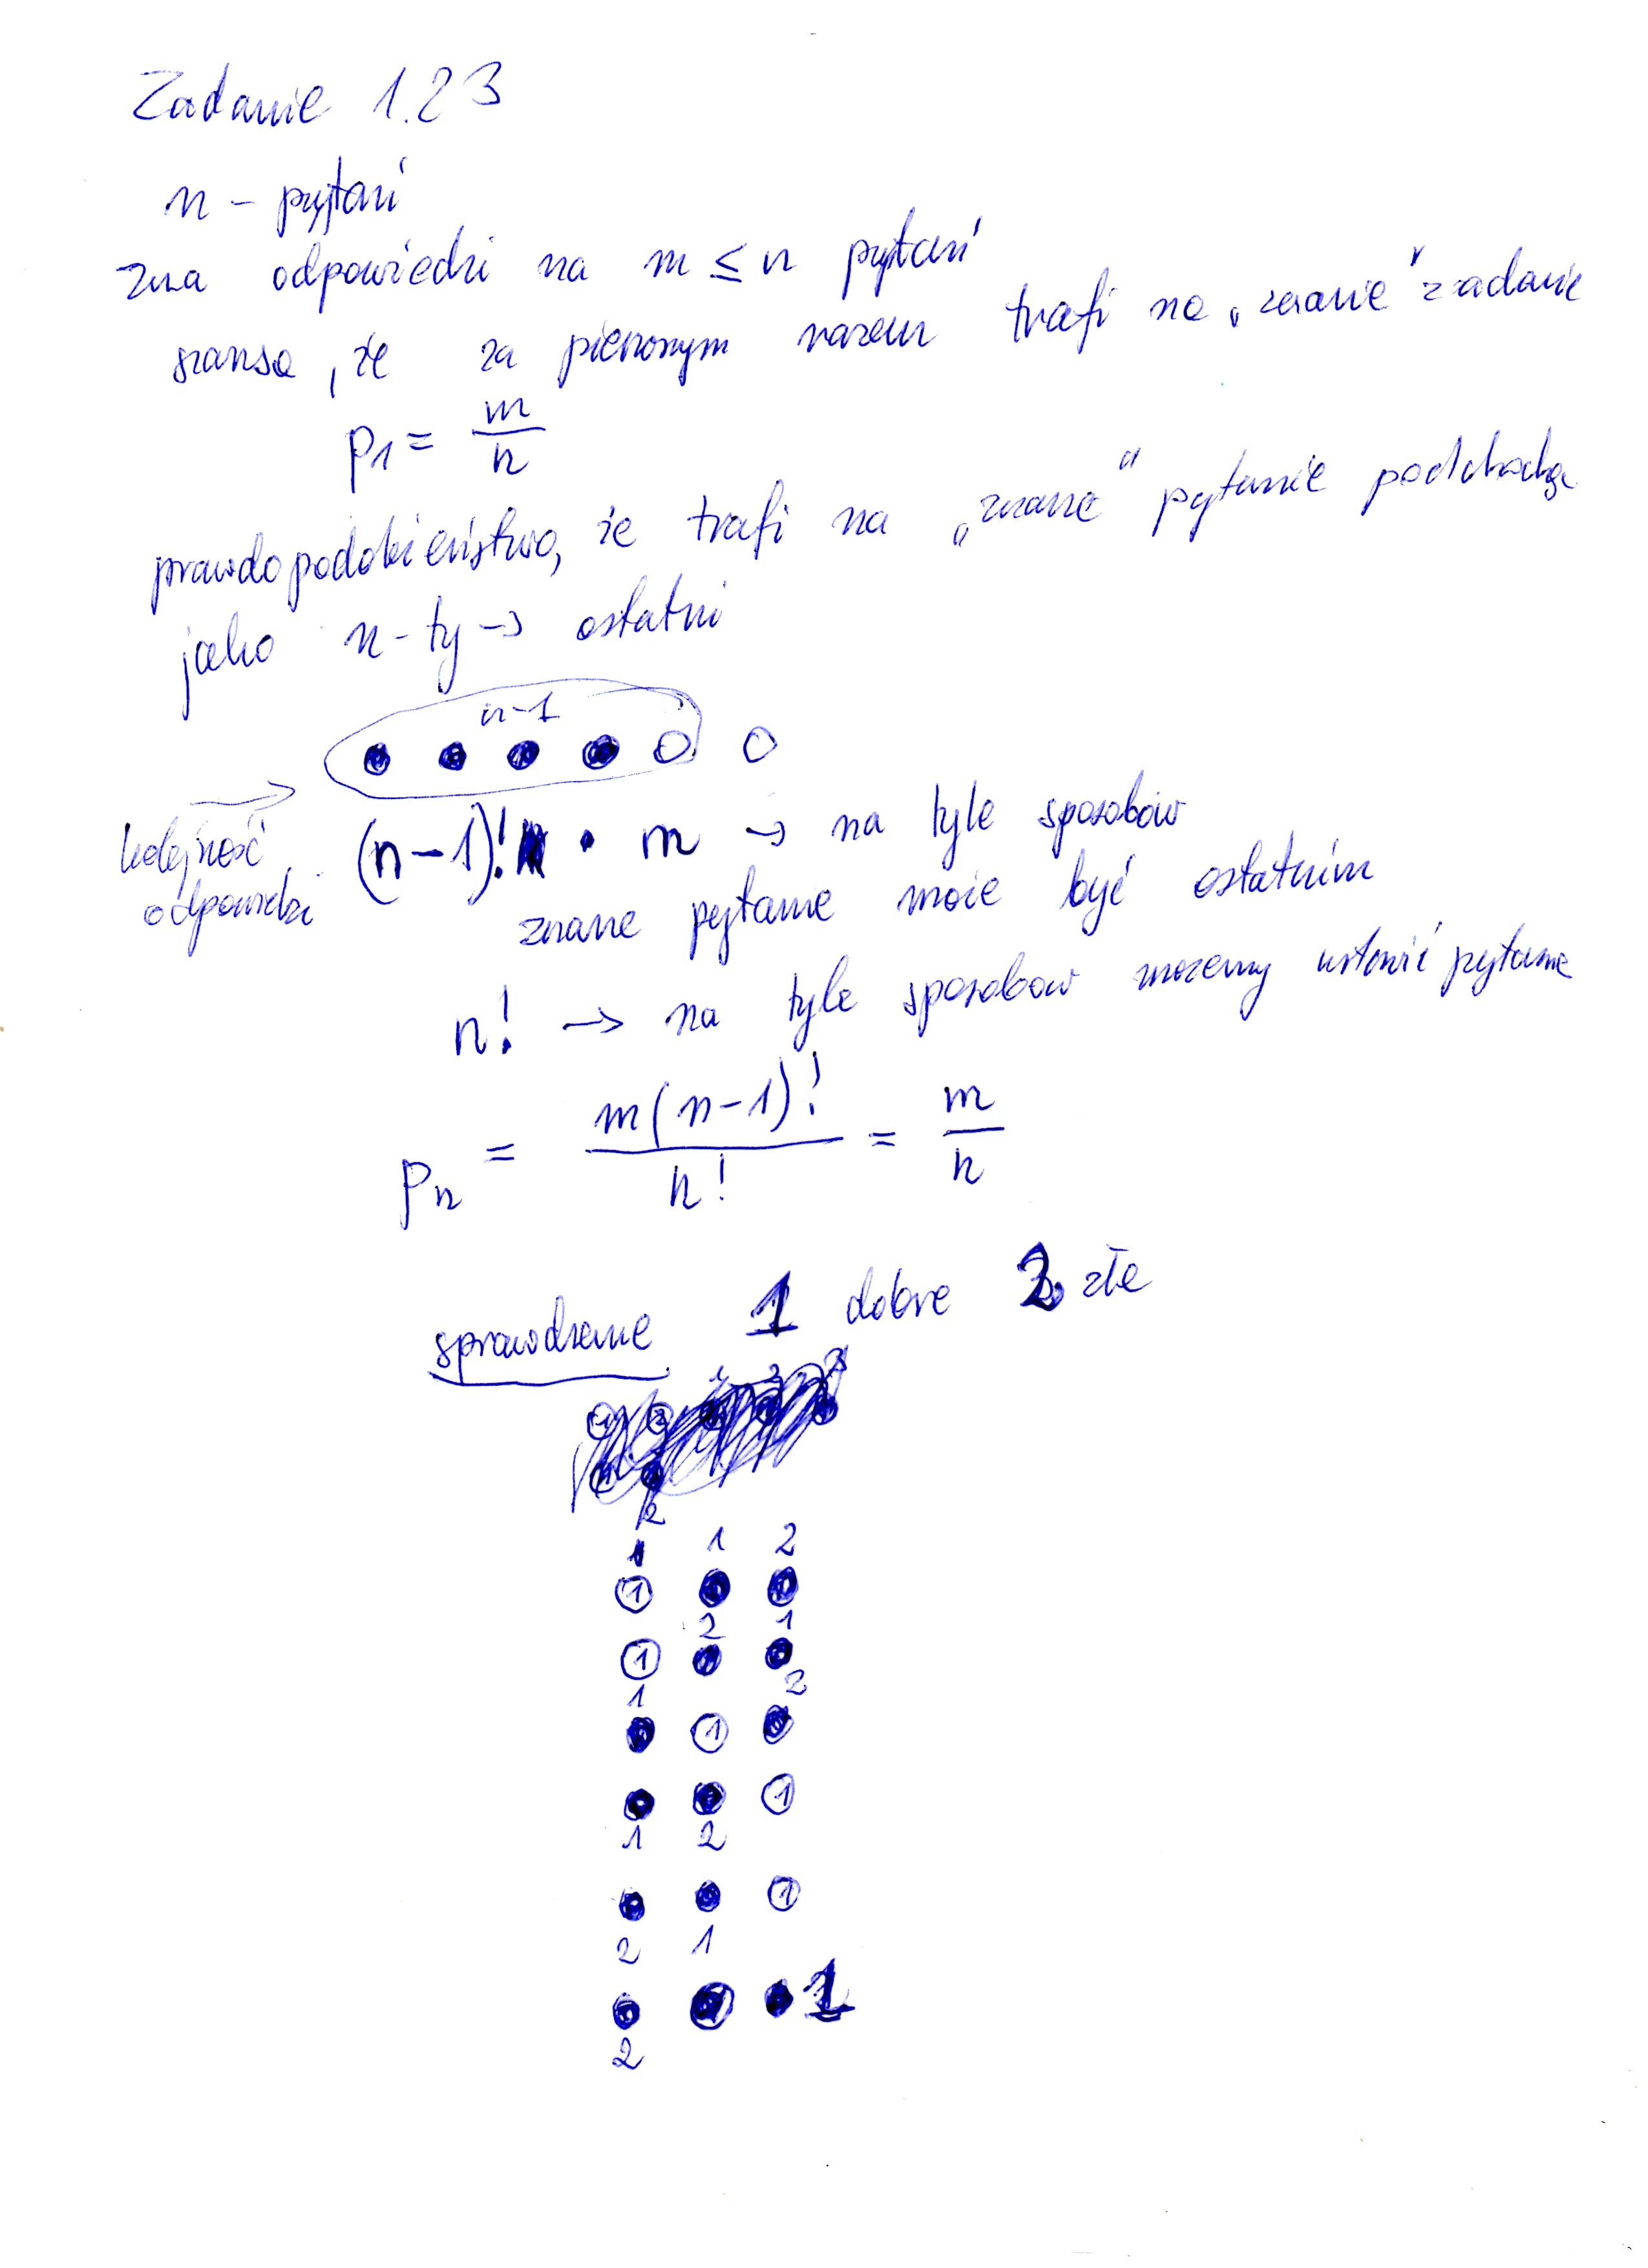 Zadanie 1.23
n - pytań
zna odpowiedzi na m ≤ n pytań
szansa, że za pierwszym razem trafi na „znane" zadanie
p1 = m/n
prawdopodobieństwo, że trafi na „znane" pytanie podchodząc
jako n-ty → ostatni
n-1
kolejność odpowiedzi
(n-1)! · m → na tyle sposobów
znane pytanie może być ostatnim
n! → na tyle sposobów możemy ustawić pytanie
pn = m(n-1)!/n! = m/n
sprawdzenie 1 dobre 2 złe
1 1 2
1
2 1
1
1 2
1
1
1 2
1
2 1
1
2